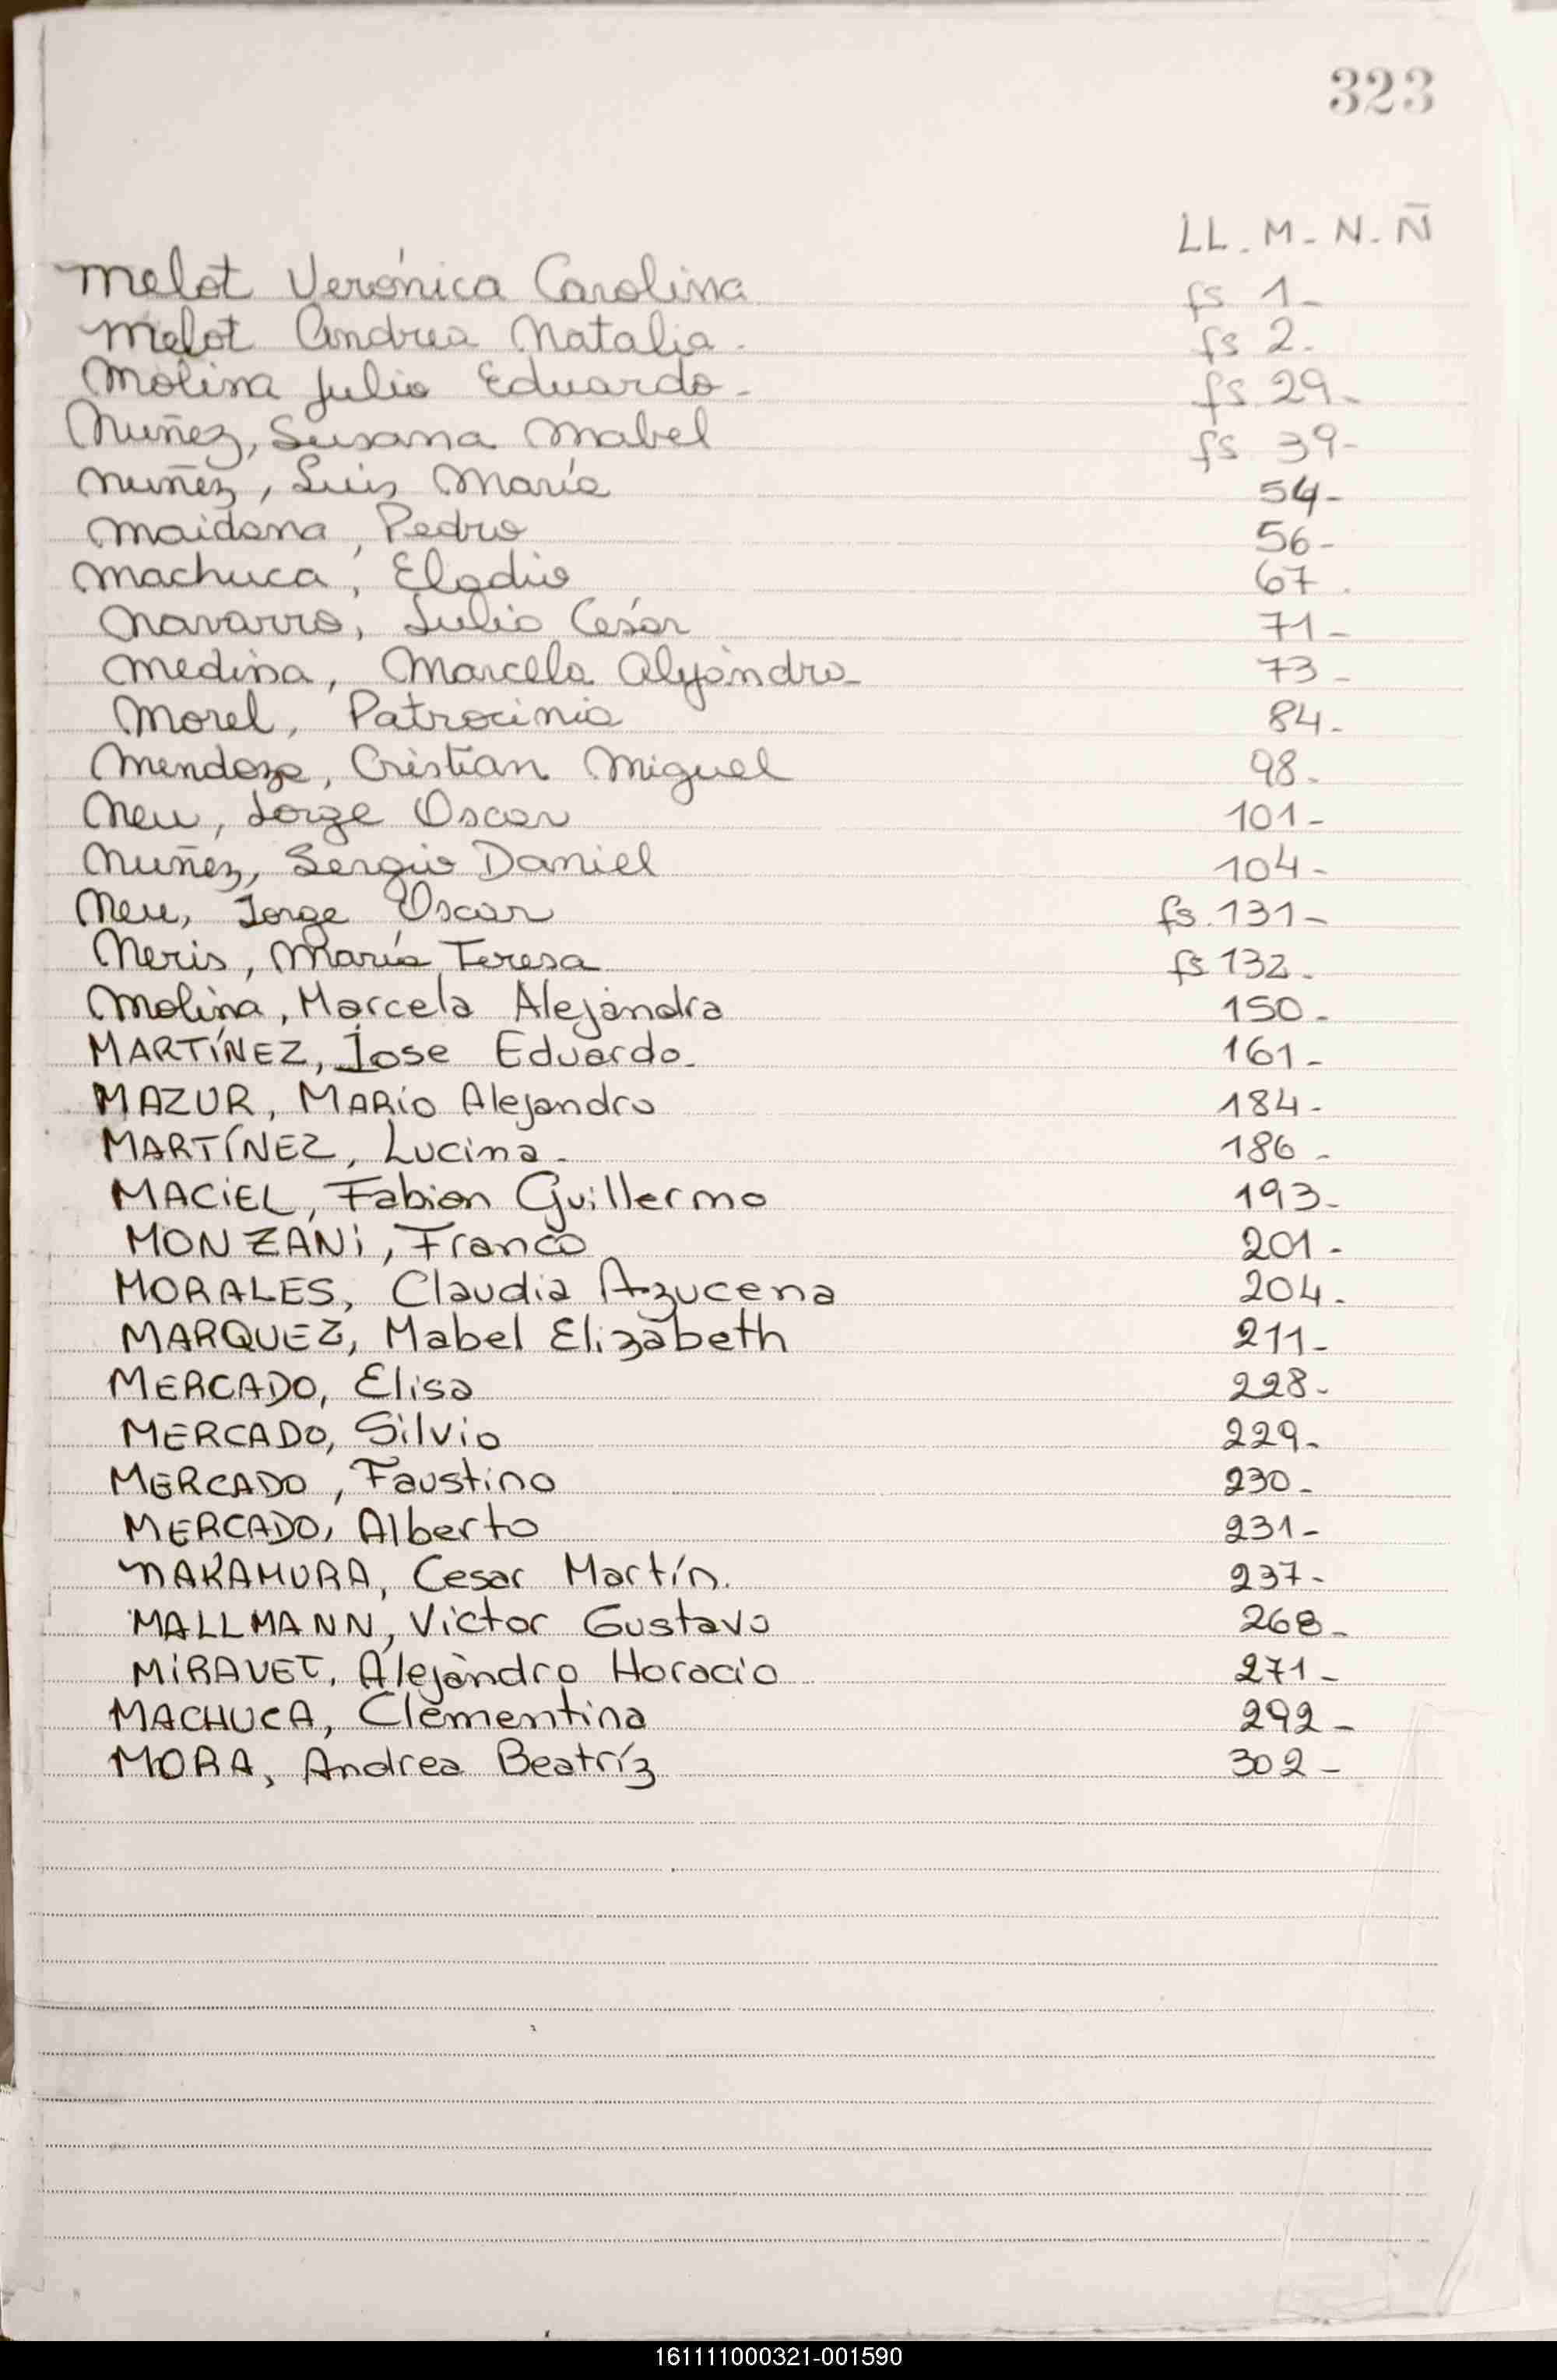 323
LL. M- N- Ñ
Melot Verónica Carolina fs 1-
Melot Andrea Natalia. fs 2.
Molina Julio Eduardo- fs. 29-
Nuñez, Susana Mabel fs 39-
Nuñez, Luis María 54-
Maidana, Pedro 56-
Machuca, Eladio 67.
Navarro, Julio César 71-
Medina, Marcelo Alejandro- 73-
Morel, Patrocinia 84-
Mendoza, Cristian Miguel 98-
Neu, Jorge Oscar 101-
Nuñez, Sergio Daniel 104-
Neu, Jorge Oscar fs. 131-
Neris, María Teresa fs 132-
Molina, Marcela Alejandra 150-
MARTÍNEZ, Jose Eduardo- 161-
MAZUR, MARiO Alejandro 184-
MARTÍNEZ, Lucina- 186-
MACiEL, Fabian Guillermo 193-
MONZANi, Franco 201-
MORALES, Claudia Azucena 204-
MARQUEZ, Mabel Elizabeth 211-
MERCADO, Elisa 228-
MERCADO, Silvio 229-
MERCADO, Faustino 230-
MERCADO, Alberto 231-
NAKAMURA, Cesar Martín. 237-
MALLMANN, Victor Gustavo 268-
MiRAVET, Alejandro Horacio 271-
MACHUCA, Clementina 292-
MORA, Andrea Beatríz 302-
161111000321-001590